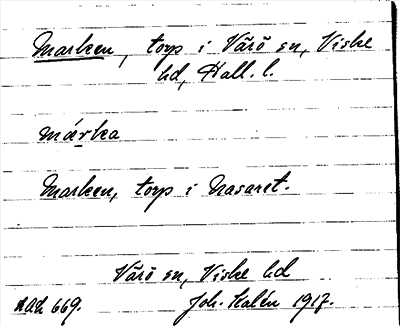 Marken, torp i Värö sn, Viske
hd, Hall. l.
márka
Marken, torp i Nasaret.
Värö sn, Viske hd
669. Joh. Kalén 1917.